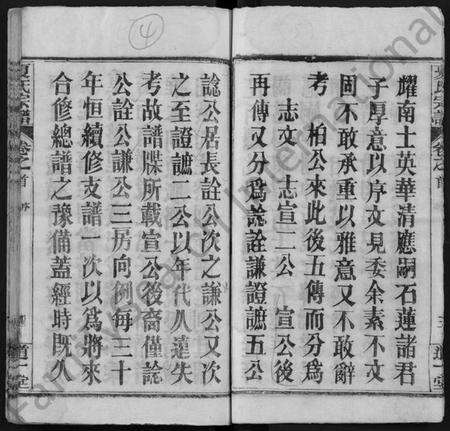 耀南士英華清應嗣石蓮諸君
子厚意以序文見委余素不文
固不敢承重以雅意又不敢辭
考 柏公來此後五傳而分為
志文 志宣二公 宣公後
再傳又分為諗詮謙證謶五公
諗公居長詮公次之謙公又次
之至證謶二公以年代久遠失
考故譜牒所載宣公後裔僅諗
公詮公謙公三房向例每三十
年恒續修支譜一次以為將來
合修總譜之豫備蓋經時既久
夏氏宗譜
卷之首
序
道一堂
夏氏宗譜
卷之首
道一堂
④
FamilySearch International